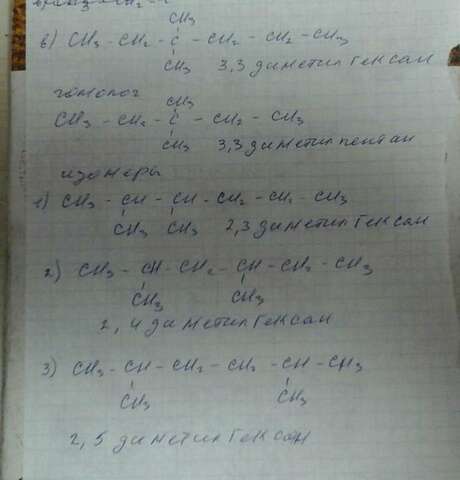 CH3
в) CH3 - CH2 - C - CH2 - CH2 - CH3
CH3 3,3 диметил гексан
гомолог
CH3
CH3 - CH2 - C - CH2 - CH3
CH3 3,3 диметил пентан
изомеры
1) CH3 - CH - CH - CH2 - CH2 - CH3
CH3 CH3 2,3 диметил гексан
2) CH3 - CH - CH2 - CH - CH2 - CH3
CH3 CH3
2,4 диметил гексан
3) CH3 - CH - CH2 - CH2 - CH - CH3
CH3 CH3
2,5 диметил гексан